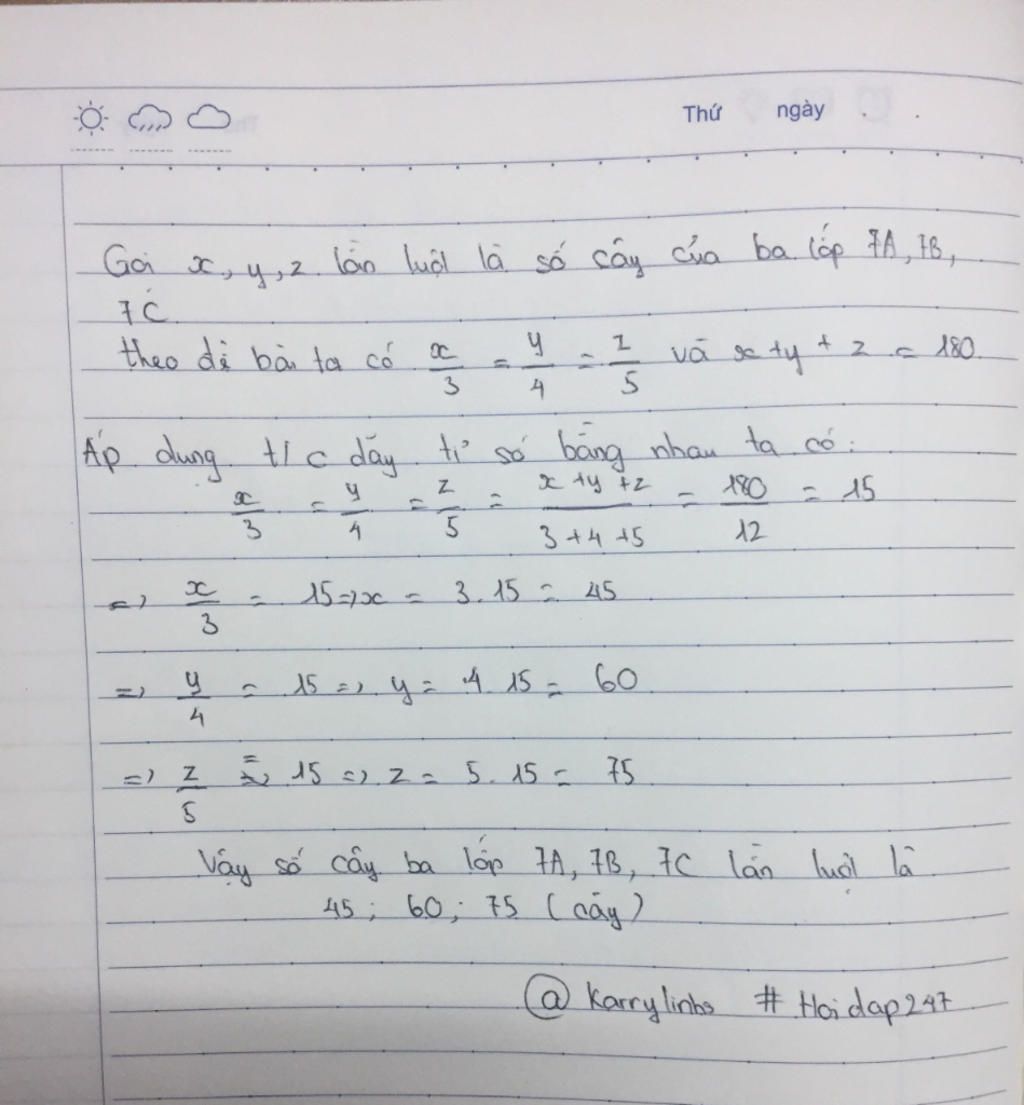 Thứ ngày
Gọi x, y, z lần luột là số cây của ba lớp 7A, 7B,
7C
theo đề bài ta có x/3 = y/4 = z/5 và x + y + z = 180
Áp dung t/c dãy tỉ số bằng nhau ta có:
x/3 = y/4 = z/5 = (x + y + z)/(3 + 4 + 5) = 180/12 = 15
=> x/3 = 15 => x = 3.15 = 45
=> y/4 = 15 => y = 4.15 = 60
=> z/5 = 15 => z = 5.15 = 75
Vậy số cây ba lớp 7A, 7B, 7C lần luột là
45; 60; 75 (cây)
@Karrylinhs #Hoidap247